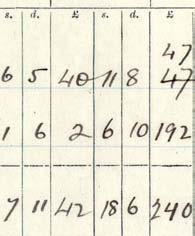 s. d. £ s. d. £
47
6 5 40 11 8 47
1 6 2 6 10 192
7 11 42 18 6 240